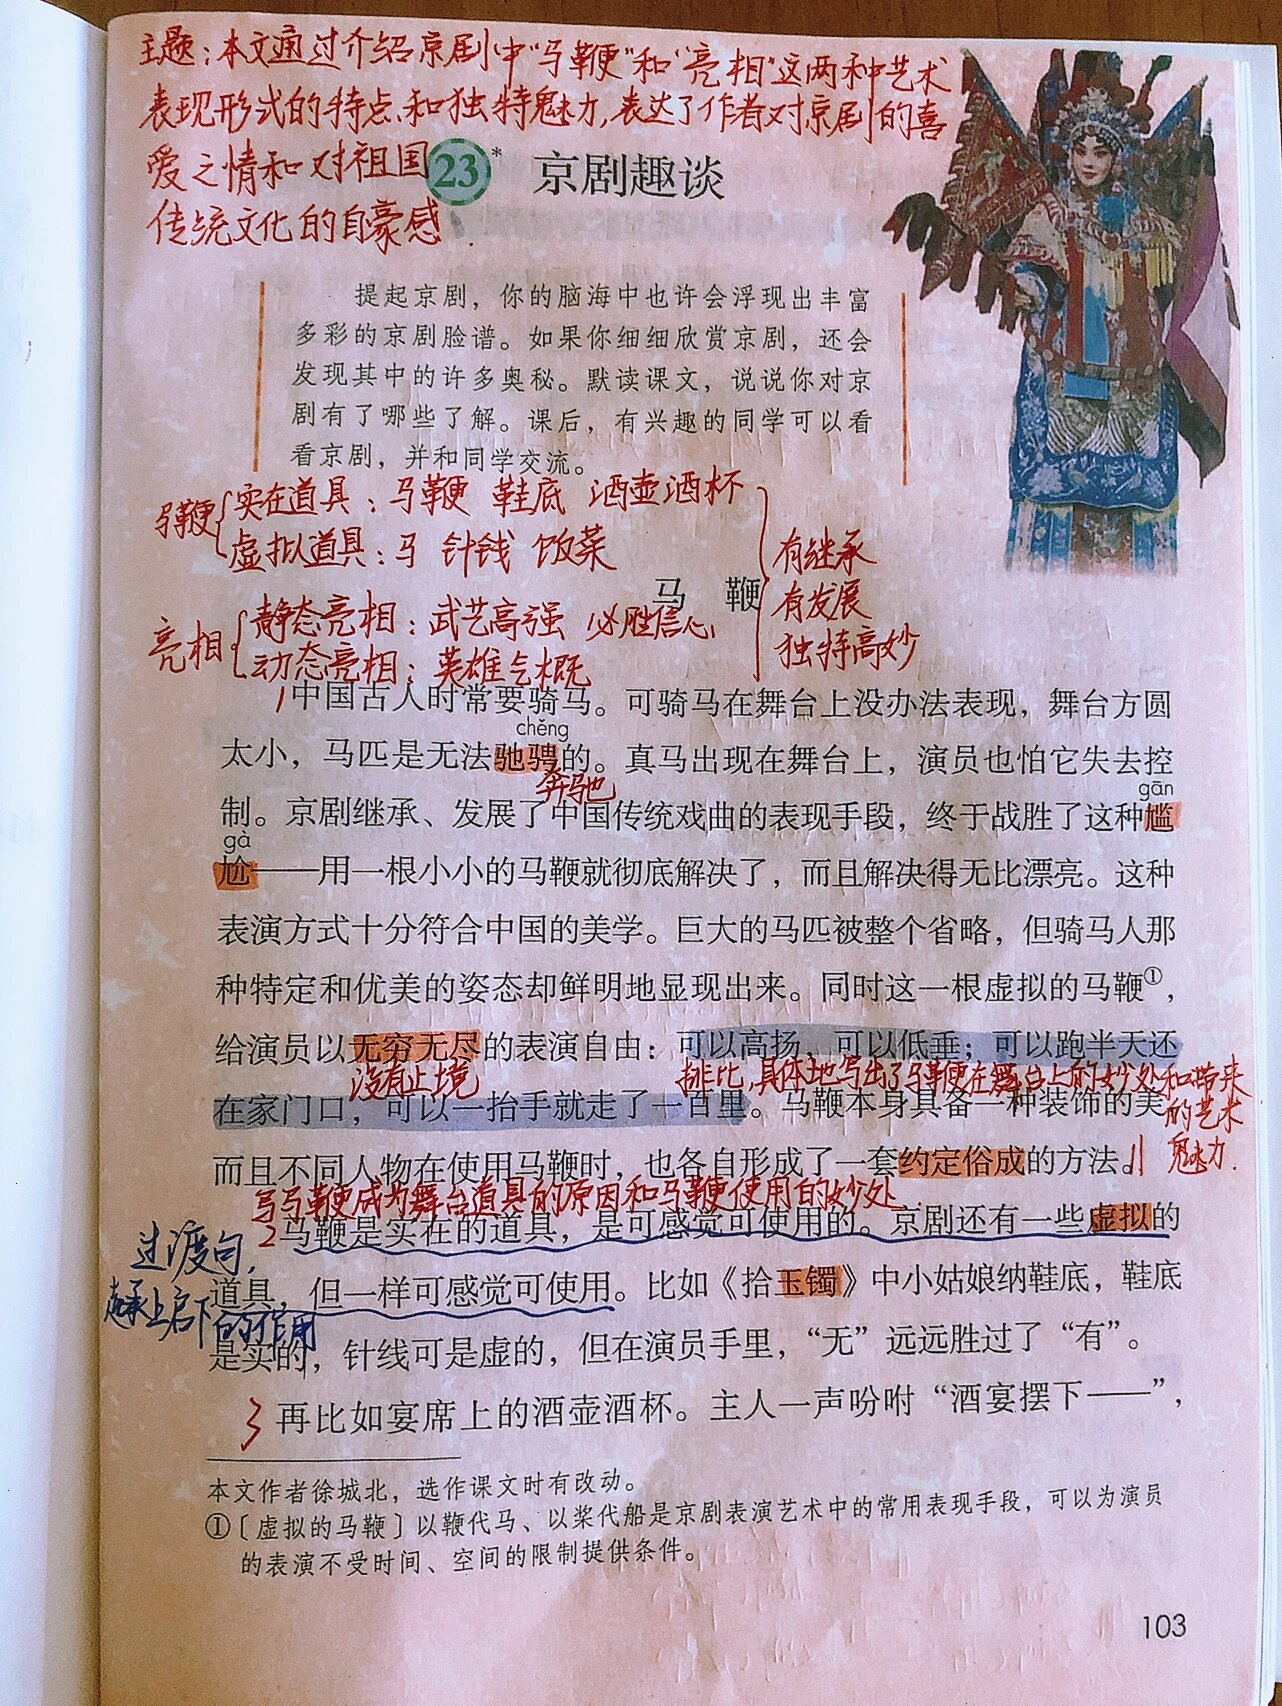 主题：本文通过介绍京剧中“马鞭”和“亮相”这两种艺术
表现形式的特点和独特魅力，表达了作者对京剧的喜
爱之情和对祖国
传统文化的自豪感.
23* 京剧趣谈
提起京剧，你的脑海中也许会浮现出丰富
多彩的京剧脸谱。如果你细细欣赏京剧，还会
发现其中的许多奥秘。默读课文，说说你对京
剧有了哪些了解。课后，有兴趣的同学可以看
看京剧，并和同学交流。
马鞭 实在道具：马鞭 鞋底 酒壶酒杯
虚拟道具：马 针线 饭菜
有继承
有发展
独特高妙
马 鞭
亮相 静态亮相：武艺高强 必胜信心
动态亮相：英雄气概
1 中国古人时常要骑马。可骑马在舞台上没办法表现，舞台方圆
chěng
太小，马匹是无法驰骋的。真马出现在舞台上，演员也怕它失去控
奔驰
gān
制。京剧继承、发展了中国传统戏曲的表现手段，终于战胜了这种尴
gà
尬——用一根小小的马鞭就彻底解决了，而且解决得无比漂亮。这种
表演方式十分符合中国的美学。巨大的马匹被整个省略，但骑马人那
种特定和优美的姿态却鲜明地显现出来。同时这一根虚拟的马鞭①，
给演员以无穷无尽的表演自由：可以高扬，可以低垂；可以跑半天还
没有止境
排比，具体地写出了马鞭在舞台上的妙处和带来
的艺术
魅力.
在家门口，可以一抬手就走了一百里。马鞭本身具备一种装饰的美，
而且不同人物在使用马鞭时，也各自形成了一套约定俗成的方法。
写马鞭成为舞台道具的原因和马鞭使用的妙处
2 马鞭是实在的道具，是可感觉可使用的。京剧还有一些虚拟的
过渡句，
起承上启下的作用
道具，但一样可感觉可使用。比如《拾玉镯》中小姑娘纳鞋底，鞋底
是实的，针线可是虚的，但在演员手里，“无”远远胜过了“有”。
3 再比如宴席上的酒壶酒杯。主人一声吩咐“酒宴摆下——”，
本文作者徐城北，选作课文时有改动。
①〔虚拟的马鞭〕以鞭代马、以桨代船是京剧表演艺术中的常用表现手段，可以为演员
的表演不受时间、空间的限制提供条件。
103